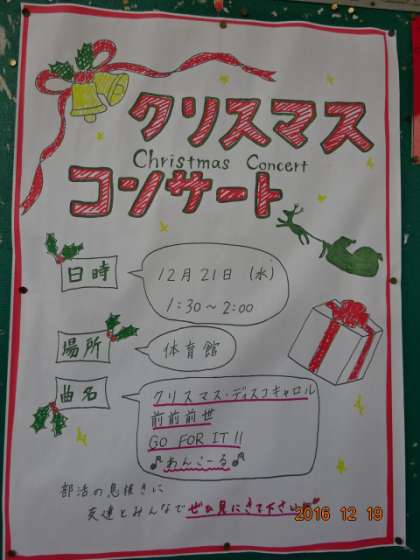 クリスマス
Christmas Concert
コンサート
日時
12月21日 (水)
1:30〜2:00
場所
体育館
曲名
クリスマス・ディスコキャロル
前前前世
GO FOR IT!!
♪あんこーる♪
部活の息抜きに
友達とみんなでぜひ見にきて下さい!!
2016 12 19